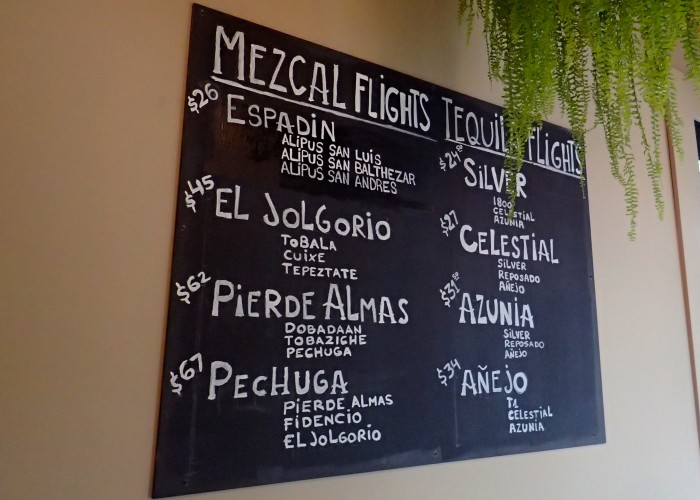 MEZCAL FLIGHTS
$26 ESPADIN
ALIPUS SAN LUIS
ALIPUS SAN BALTHEZAR
ALIPUS SAN ANDRES
$45 EL JOLGORIO
TOBALA
CUIXE
TEPEZTATE
$62 PIERDE ALMAS
DOBADAAN
TOBAZICHE
PECHUGA
$67 PECHUGA
PIERDE ALMAS
FIDENCIO
EL JOLGORIO
TEQUILA FLIGHTS
$24 SILVER
1800
CELESTIAL
AZUNIA
$27 CELESTIAL
SILVER
REPOSADO
AÑEJO
$31 AZUNIA
SILVER
REPOSADO
AÑEJO
$34 AÑEJO
T1
CELESTIAL
AZUNIA